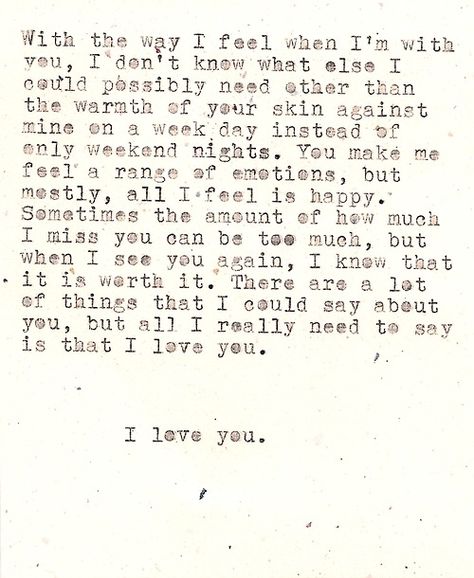 With the way I feel when I'm with
you, I don't know what else I
could possibly need other than
the warmth of your skin against
mine on a week day instead of
only weekend nights. You make me
feel a range of emotions, but
mostly, all I feel is happy.
Sometimes the amount of how much
I miss you can be too much, but
when I see you again, I know that
it is worth it. There are a lot
of things that I could say about
you, but all I really need to say
is that I love you.
I love you.